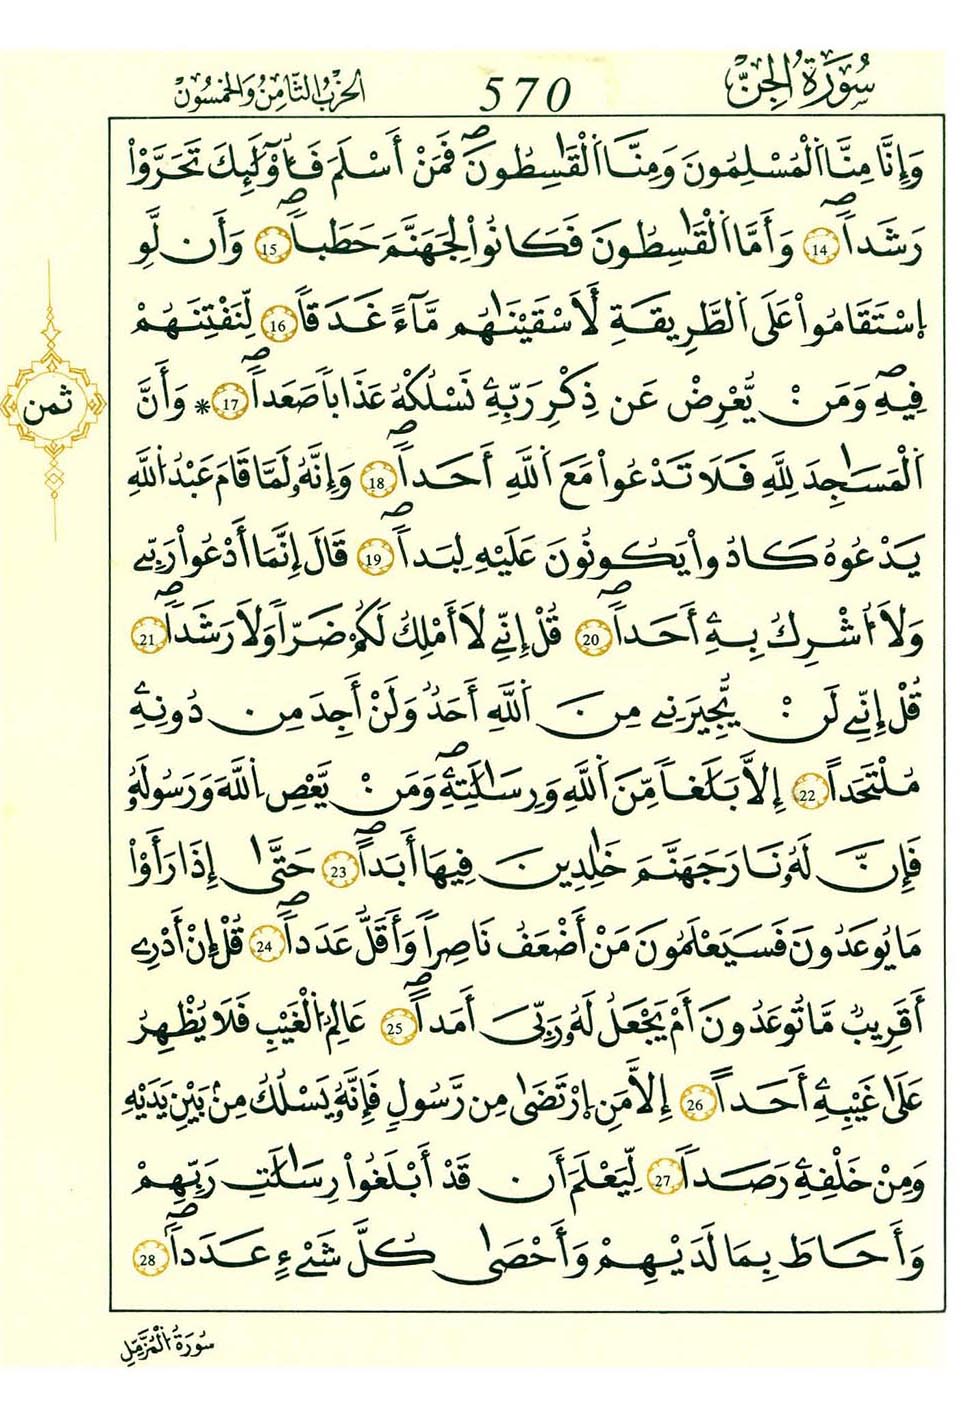 سُورَةُ الْجِنِّ
570
الحِزْبُ الثَّامِنُ وَالخَمْسُونَ
وَإِنَّا مِنَّا اَ۬لْمُسْلِمُونَ وَمِنَّا اَ۬لْقَٰسِطُونَۖ فَمَنْ أَسْلَمَ فَأُوْلَٰٓئِكَ تَحَرَّوْاْ
رَشَداٗۖ 14 وَأَمَّا اَ۬لْقَٰسِطُونَ فَكَانُواْ لِجَهَنَّمَ حَطَباٗۖ 15 وَأَن لَّوِ
اِ۪سْتَقَٰمُواْ عَلَى اَ۬لطَّرِيقَةِ لَأَسْقَيْنَٰهُم مَّآءً غَدَقاٗ 16 لِّنَفْتِنَهُمْ
فِيهِۖ وَمَنْ يُّعْرِضْ عَن ذِكْرِ رَبِّهِۦ نَسْلُكْهُ عَذَاباٗ صَعَداٗۖ 17 * وَأَنَّ
اَ۬لْمَسَٰجِدَ لِلهِ فَلَا تَدْعُواْ مَعَ اَ۬للَّهِ أَحَداٗۖ 18 وَإِنَّهُۥ لَمَّا قَامَ عَبْدُ اُ۬للَّهِ
يَدْعُوهُ كَادُواْ يَكُونُونَ عَلَيْهِ لِبَداٗۖ 19 قَالَ إِنَّمَا أَدْعُواْ رَبِّے
وَلَا أُشْرِكُ بِهِۦ أَحَداٗۖ 20 قُلْ إِنِّے لَا أَمْلِكُ لَكُمْ ضَرّاٗ وَلَا رَشَداٗۖ 21
قُلْ إِنِّے لَنْ يُّجِيرَنِے مِنَ اَ۬للَّهِ أَحَدٌ وَلَنْ أَجِدَ مِن دُونِهِۦ
مُلْتَحَداً 22 إِلَّا بَلَٰغاٗ مِّنَ اَ۬للَّهِ وَرِسَٰلَٰتِهِۦۖ وَمَنْ يَّعْصِ اِ۬للَّهَ وَرَسُولَهُۥ
فَإِنَّ لَهُۥ نَارَ جَهَنَّمَ خَٰلِدِينَ فِيهَا أَبَداًۖ 23 حَتَّىٰ إِذَا رَأَوْاْ
مَا يُوعَدُونَ فَسَيَعْلَمُونَ مَنْ أَضْعَفُ نَاصِراٗ وَأَقَلُّ عَدَداٗۖ 24 قُلْ إِنْ أَدْرِے
أَقَرِيبٌ مَّا تُوعَدُونَ أَمْ يَجْعَلُ لَهُۥ رَبِّيَ أَمَداًۖ 25 عَٰلِمُ اُ۬لْغَيْبِ فَلَا يُظْهِرُ
عَلَىٰ غَيْبِهِۦ أَحَداً 26 إِلَّا مَنِ اِ۪رْتَضَىٰ مِن رَّسُولٍ فَإِنَّهُۥ يَسْلُكُ مِنۢ بَيْنِ يَدَيْهِ
وَمِنْ خَلْفِهِۦ رَصَداٗ 27 لِّيَعْلَمَ أَن قَدْ أَبْلَغُواْ رِسَٰلَٰتِ رَبِّهِمْ
وَأَحَاطَ بِمَا لَدَيْهِمْ وَأَحْصَىٰ كُلَّ شَےْءٍ عَدَداٗۖ 28
ثمن
سُورَةُ الْمُزَّمِّلِ